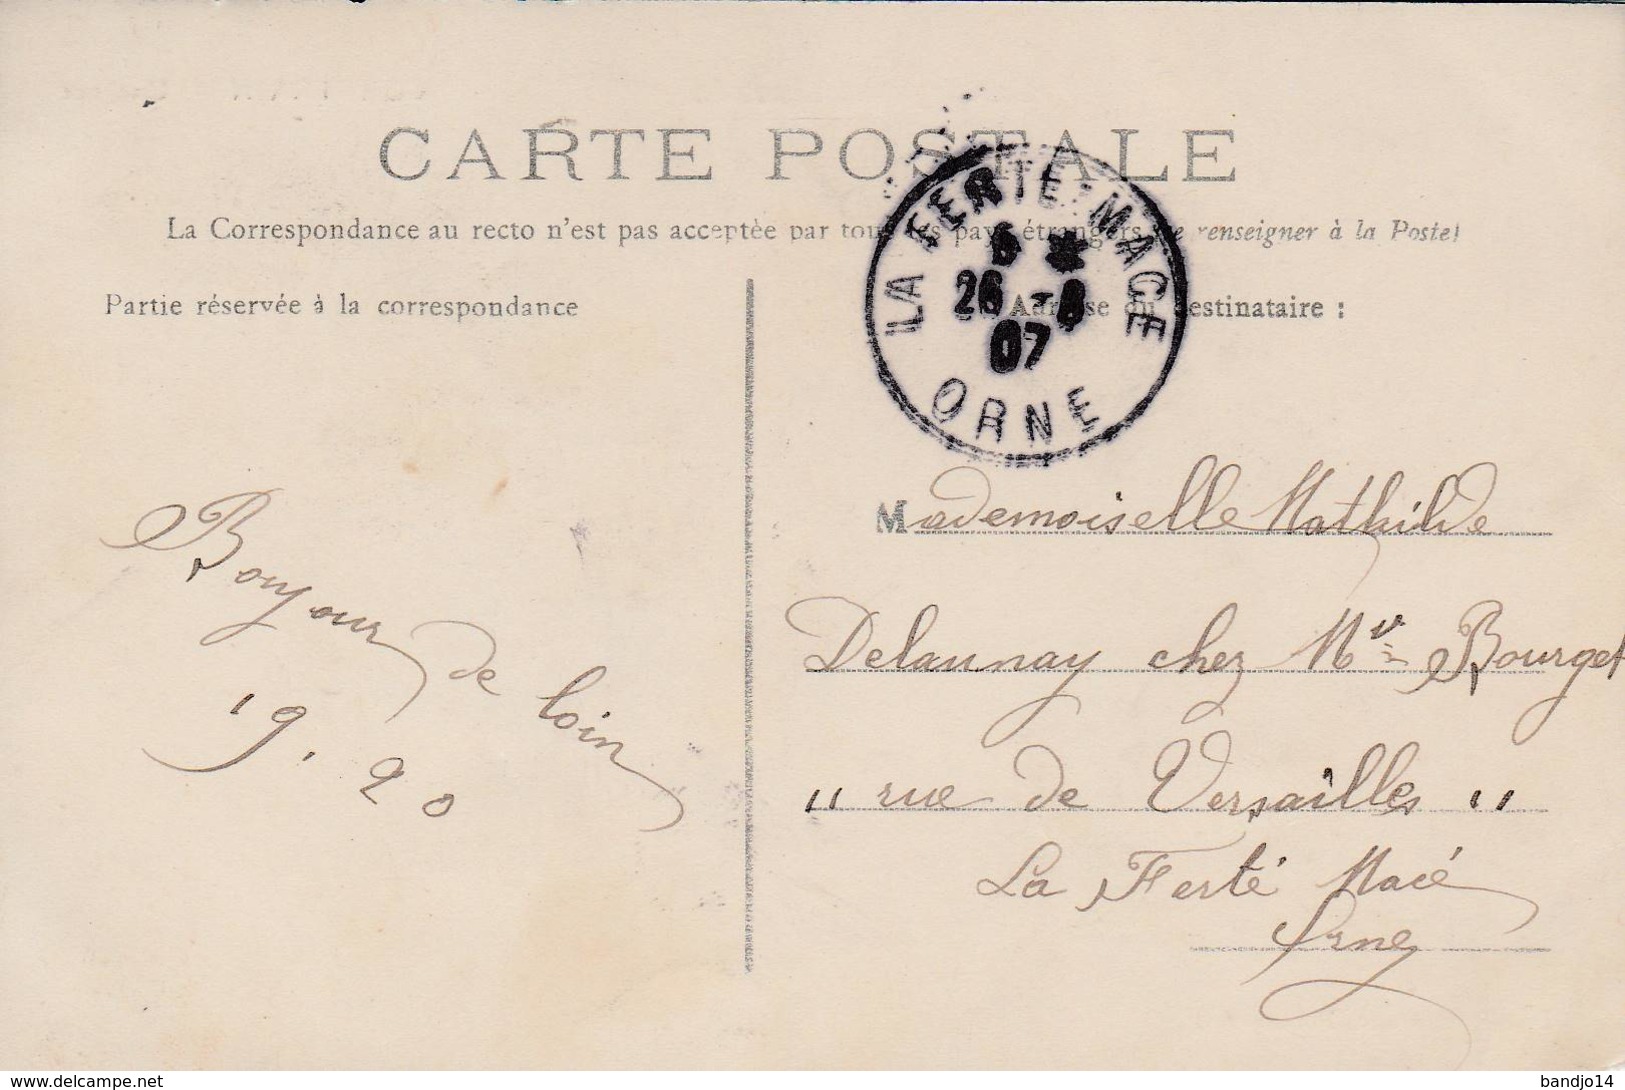 CARTE POSTALE
La Correspondance au recto n'est pas acceptée par tous les pays étrangers (Se renseigner à la Poste)
LA FERTE-MACE
6 *
26 -8
07
ORNE
Partie réservée à la correspondance
Adresse du destinataire :
Bonjour de loin
19.20
Mademoiselle Mathilde
Delaunay chez Mr Bourget
" rue de Versailles "
La Ferté Macé
Orne
www.delcampe.net
bandjo14